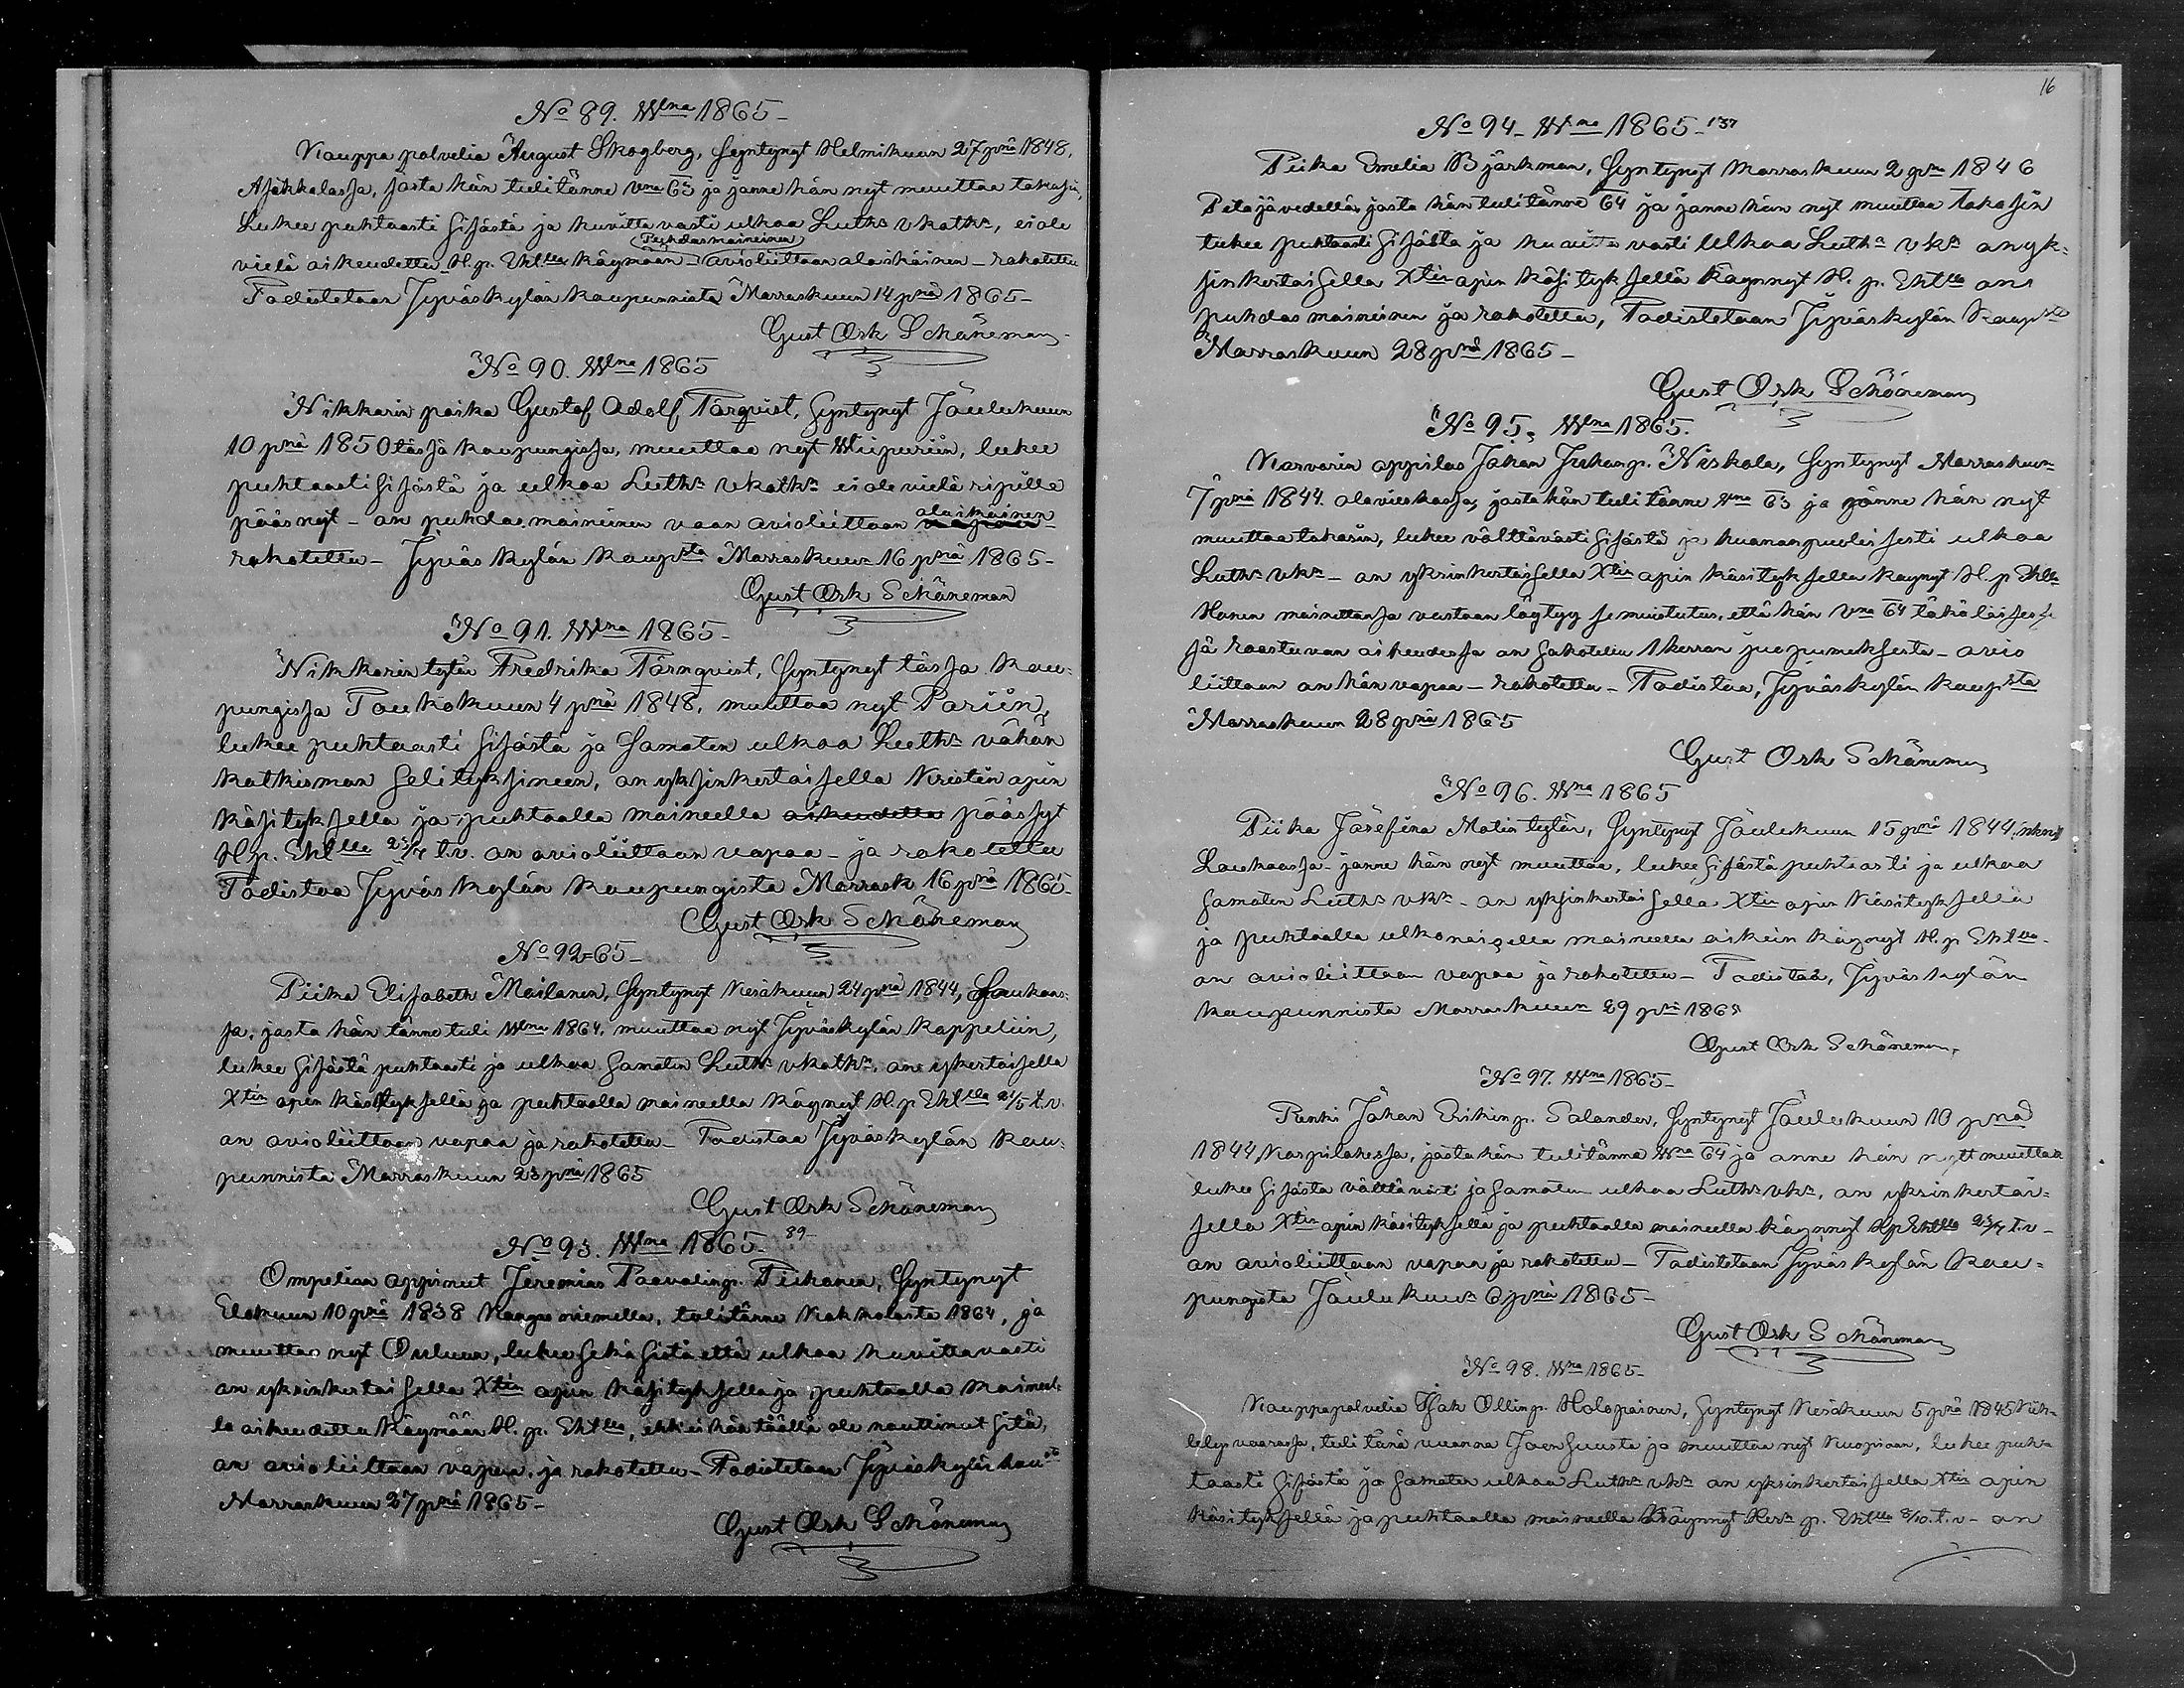 No 89. Wna 1865-
Kauppa palvelia August Skogberg, syntynyt Helmikuun 27 pnä 1848,
Asikkalassa, josta hän tuli tänne vna 63 ja janne hän nyt muuttaa takasin,
Lukee puhtaasti sisästä ja kuvitta vasti ulkoa Luthn vkathn, ei ole
Puhdasmaineinen
vielä oikeudettu H. p. Ehtlla käymään - avioliittoon alaikäinen - rakotettu
Todistetaan Jyväskylän kaupunnista Marraskuun 14 pnä 1865-
Gust Osk Schöneman
No 90. Wna 1865
Nikkarin poika Gustaf Adolf Törnqvist, syntynyt Joulukuun
10 pnä 1850 tässä kaupungissa, muuttaa nyt Wiipuriin, lukee
puhtaasti sisästä ja ulkoa Luthn vkathn ei ole vielä ripille
alaikäinen
päässyt - on puhdas maineinen vaan avioliittoon vapaa
rakotettu - Jyväskylän kaupsta Marraskuun 16 pnä 1865-
Gust Osk Schöneman
No 91. Wna 1865-
Nikkarin tytär Fredrika Törnqvist, syntynyt tässä kau-
pungissa Toukokuun 4 pnä 1848, muuttaa nyt Poriin,
lukee puhtaasti sisästä ja samaten ulkoa Luthn vähän
katkisman selityksineen, on yksinkertaisella Kristin opin
käsityksella ja puhtaalla maineella oikeudettu päässyt
H. p. Ehtlle 23/4 t.v. on avioliittoon vapaa - ja rakotettu
Todistaa Jyväskylän kaupungista Marrask 16 pnä 1865-
Gust Osk Schöneman
No 92=65-
Piika Elisabeth Moilanen, syntynyt Kesäkuun 24 pnä 1844, Laukaas-
sa, josta hän tänne tuli Wna 1864, muuttaa nyt Jyväskylän kappeliin,
lukee sisästä puhtaasti ja ulkoa samaten Luthn vkathn. on yksinkertaisella
Xtin opin käsityksellä ja puhtaalla maineella käynyt H. p Ehtlla 21/5 t.v.
on avioliittoon vapaa ja rakotettu - Todistaa Jyväskylän kau-
punnista Marraskuun 23 pnä 1865
Gust Osk Schöneman
No 93. Wna 1865- 89-
Ompelian oppinut Jeremias Paavalinp. Piikanen, syntynyt
Elokuun 10 pnä 1838 Kangasniemellä, tuli tänne Kakkolasta 1864, ja
muuttaa nyt Ouluun, lukee sekä sistä että ulkoa kuvittavasti
on yksinkertaisella Xtin opin käsityksella ja puhtaalla mainel-
la oikeudettu käymään H. p. Ehtlla, ehkei hän täällä ole nauttinut sitä,
on avioliittoon vapaa, ja rakotettu - Todistetaan Jyväskylän kausta
Marraskuun 27 pnä 1865-
Gust Osk Schöneman
16
No 94- Wna 1865- 137
Piika Emelia Björkman, Syntynyt Marraskuun 2 pnä 1846
Petäjävedellä, josta hän tuli tänne 64 ja janne hän nyt muuttaa takasin
lukee puhtaasti sisästä ja kuvitta vasti ulkoa Luthn vkn on yk-
sinkertaisella Xtin opin käsityksellä käynnyt H. p. Ehtlla on
puhdas maineinen ja rakotettu, Todistetaan Jyväskylän kaupsta
Marraskuun 28 pnä 1865-
Gust Osk Schöneman
No 95, Wna 1865.
Karvarin oppilas Johan Juhanp. Niskala, syntynyt Marraskuun
7 pnä 1844 alavieskassa, josta hän tuli tänne vna 63 ja jonne hän nyt
muuttaa takasin, lukee välttävästi sisästä ja huonanpuoleisesti ulkoa
Luthn vkn - on yksinkertaisella Xtin opin käsityksella käynyt H. p Ehtlla
Hanen mainettansa vastaan löytyy se muistutus, että hän Vna 64 täkäläises-
sä raastuvan oikeudessa on sakotettu 1 kerran juopumuksesta - avio
liittoon on hän vapaa - rakotettu - Todistaa, Jyväskylän kaupsta
Marraskuun 28 pnä 1865
Gust Osk Schöneman
No 96. Wna 1865
Piika Josefina Matin tytär, Syntynyt Joulukuun 15 pnä 1844,
Laukaassa - janne hän nyt muuttaa, lukee sisästä puhtaasti ja ulkoa
samaten Luthn vkn - on yksinkertaisella Xtin opin käsityksellä
ja puhtaalla ulkonaisella maineella oikein käynyt H. p Ehtlla-
on avioliittoon vapaa ja rakotettu - Todistaa, Jyväskylän
kaupunnista Marraskuun 29 pnä 1865
Gust Osk Schöneman,
No 97. Wna 1865-
Renki Johan Erikinp. Salander, syntynyt Joulukuun 10 pnä
1844, Korpilahessa, josta hän tuli tänne Wna 64 ja jonne hän nytt muuttaa
lukee sisästä välttävästi ja samaten ulkoa Luthn vkn, on yksinkertai-
sella Xtin opin käsityksellä ja puhtaalla maineella käynnyt Hp Ehtlla 23/4 t.v-
on avioliittoon vapaa ja rakotettu - Todistetaan Jyväskylän kau-
pungista Joulukuun 6 pnä 1865-
Gust Osk Schöneman
No 98. Wna 1865-
Kauppapalvelia Isak Ollinp. Holopainen, syntynyt Kesäkuun 5 pnä 1845 Kiih-
telysvaarassa, tuli tänä vuonna Joensuusta ja muuttaa nyt Kuopioon, lukee puh-
taasti sisästä ja samaten ulkoa Luthn vkn on yksinkertaisella Xtin opin
käsityksellä ja puhtaalla maineella käynnyt Hern p. Ehtlla 8/10. t. v - on